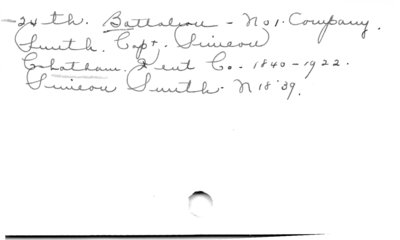 24th. Battalion - No 1. Company.
Smith. Capt. Simeon
Chatham. Kent Co. - 1840-1922.
Simeon Smith. N 18'39.